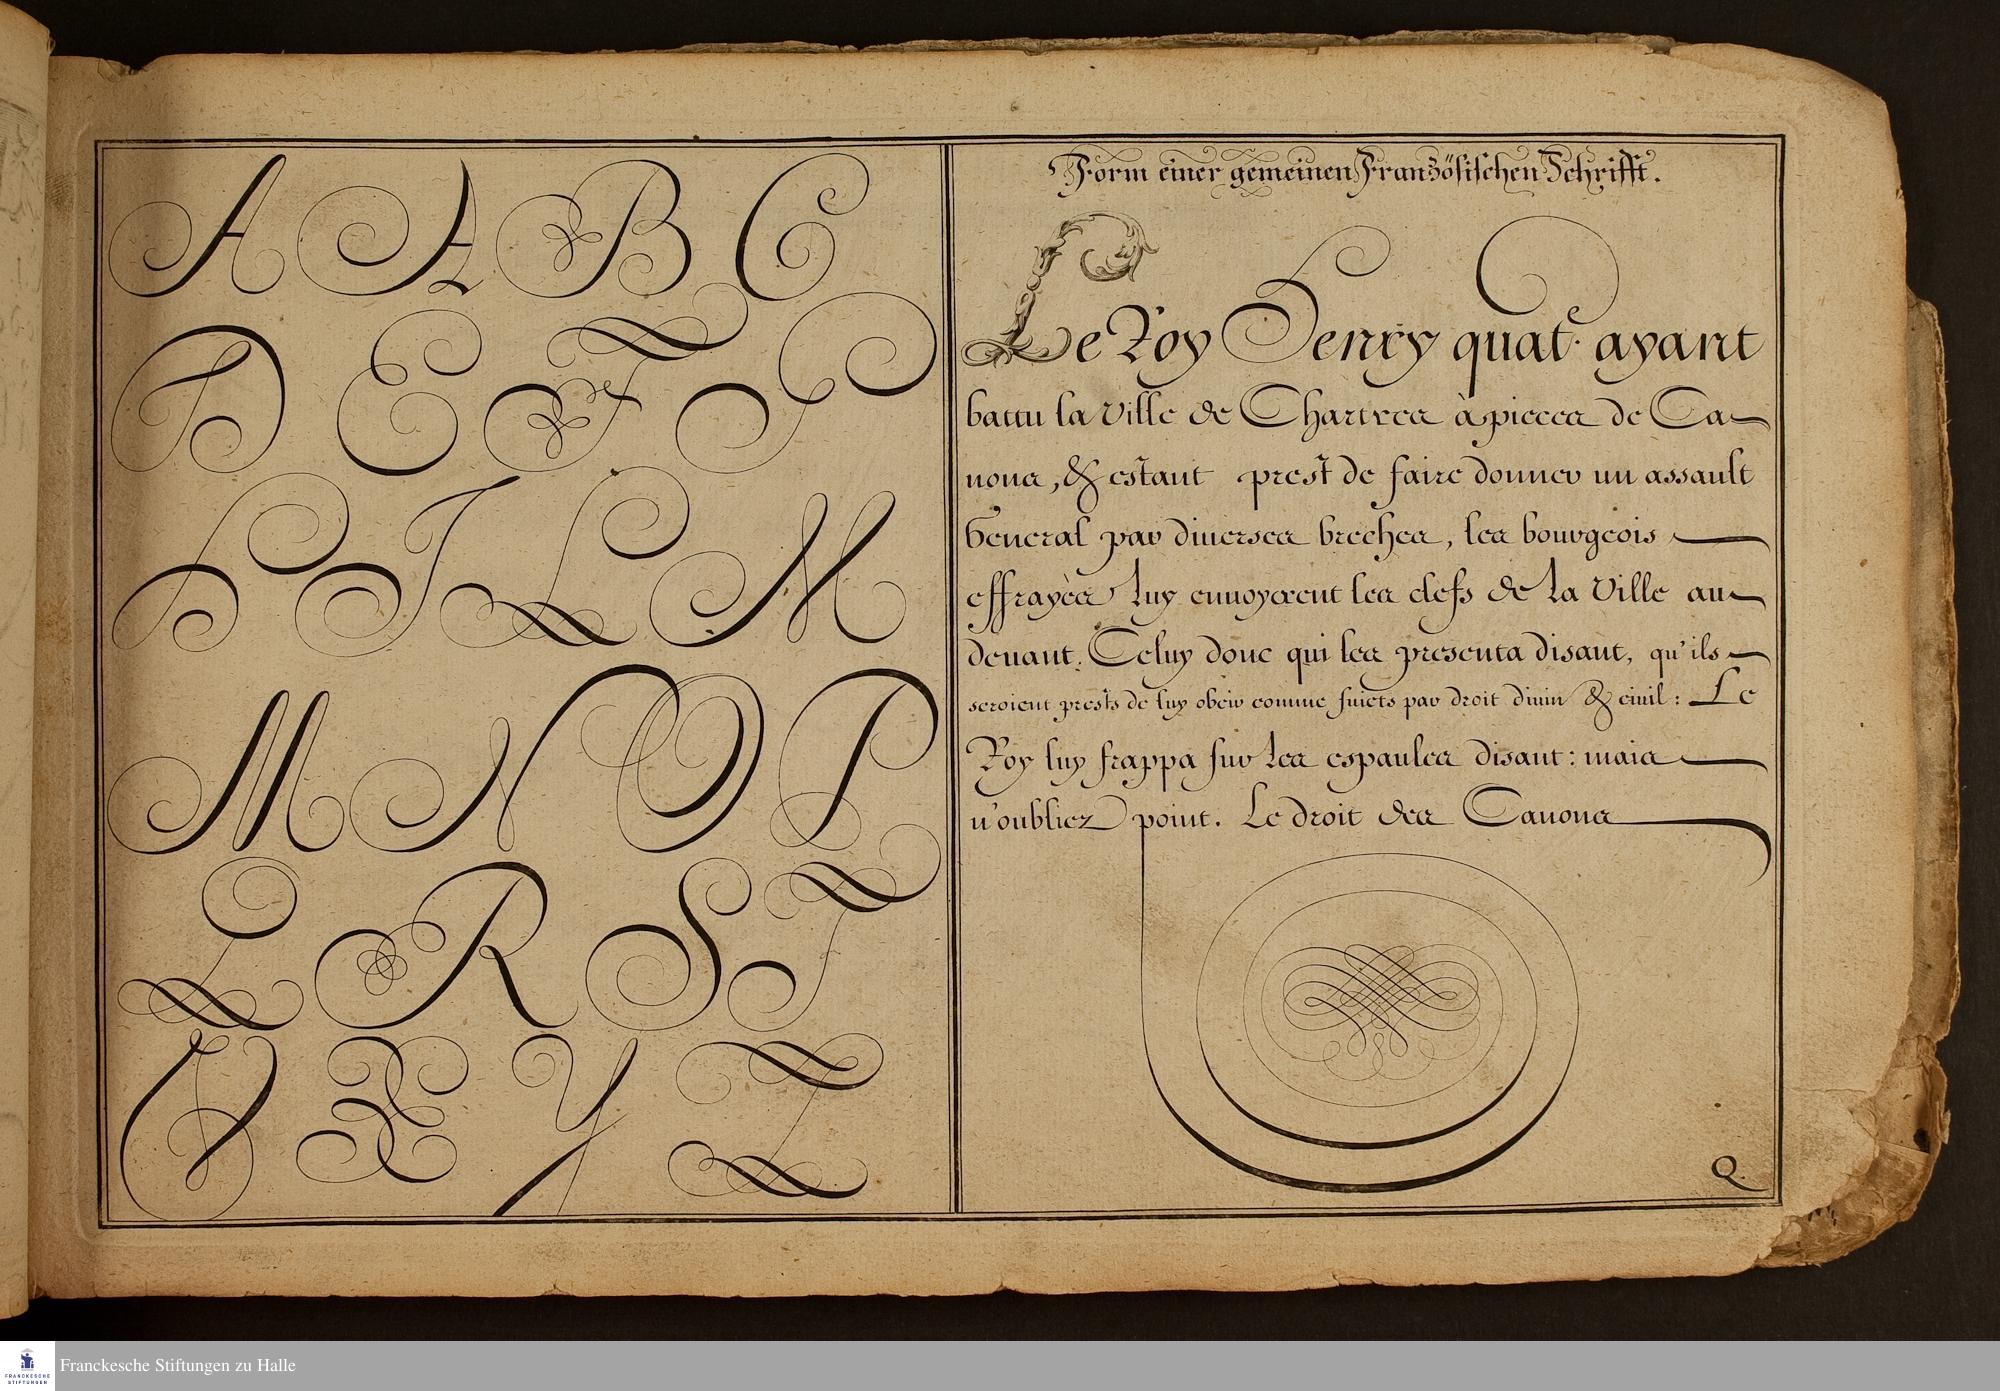 A A B C
D E F G
H I L M
M N O P
Q R S T
V X Y Z
Form einer gemeinen Französischen Schrifft.
Le Roy Henry quat. ayant
battu la Ville de Chartres à pieces de Ca-
nons, & estant prest de faire donner un assault
General par diuerses breches, les bourgeois
effrayès luy enuoyerent les clefs de la Ville au-
deuant. Celuy donc qui les presenta disant, qu'ils
seroient prests de luy obeir comme suiets par droit diuin & ciuil: Le
Roy luy frappa sur les espaules disant: mais
n'oubliez point. Le droit des Canons
Q.
Franckesche Stiftungen zu Halle
FRANCKESCHE
STIFTUNGEN